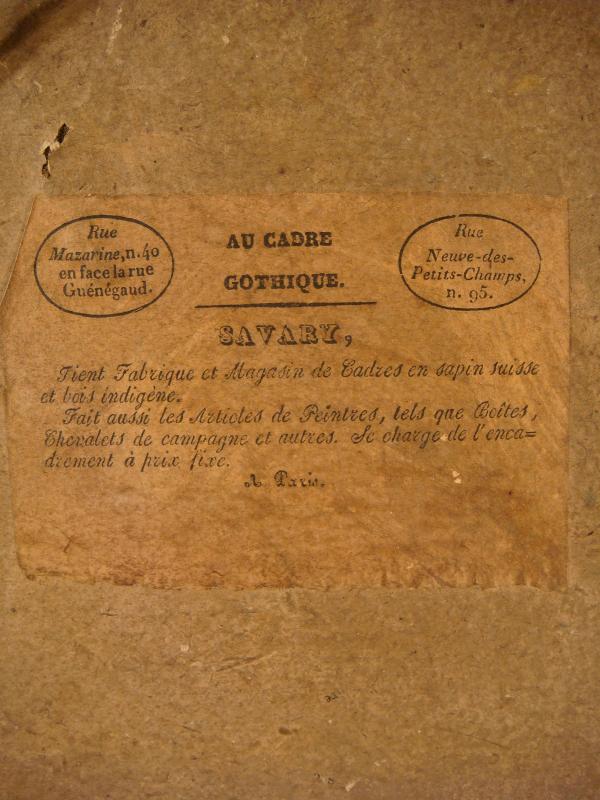 Rue
Mazarine, n. 40
en face la rue
Guénégaud.
AU CADRE
GOTHIQUE.
Rue
Neuve-des-
Petits-Champs,
n. 95.
SAVARY,
Tient Fabrique et Magasin de Cadres en sapin suisse
et bois indigène.
Fait aussi les Articles de Peintres, tels que Boîtes,
Chevalets de campagne et autres. Se charge de l'enca=
drement à prix fixe.
A Paris.